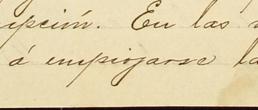 epción. En las
á empiojarse la